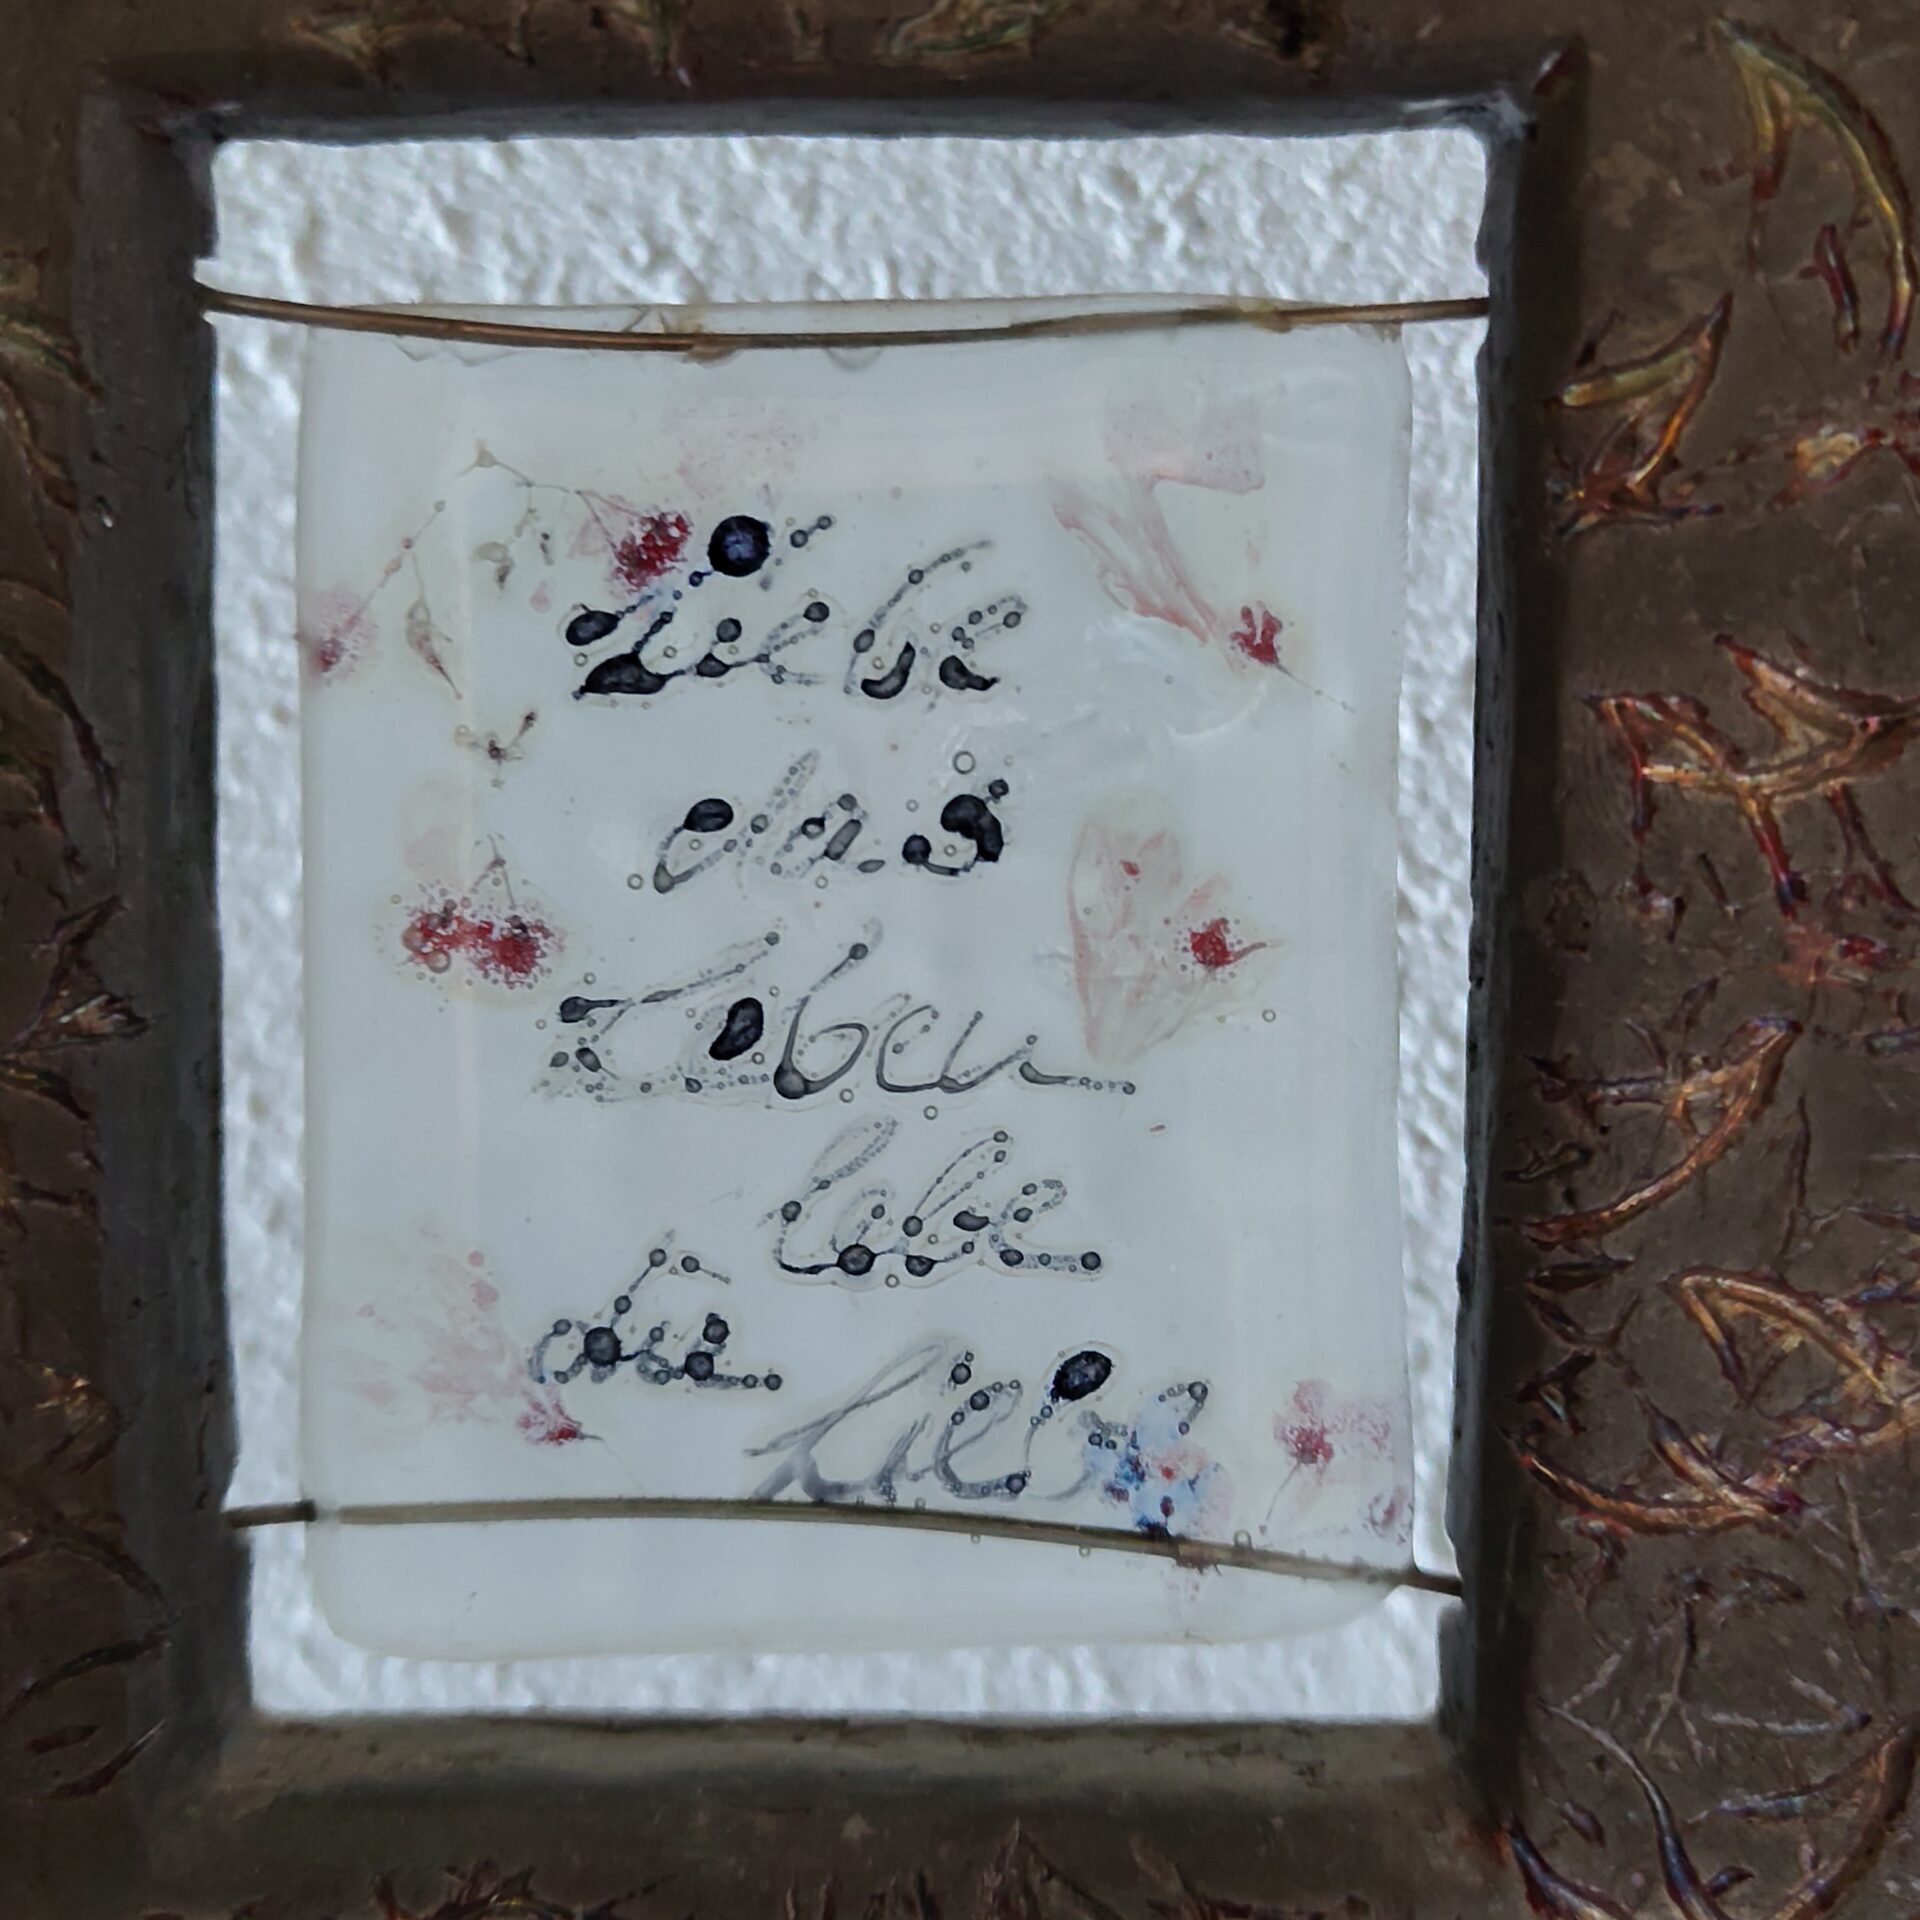 Liebe
das
Leben
lebe
die
Liebe